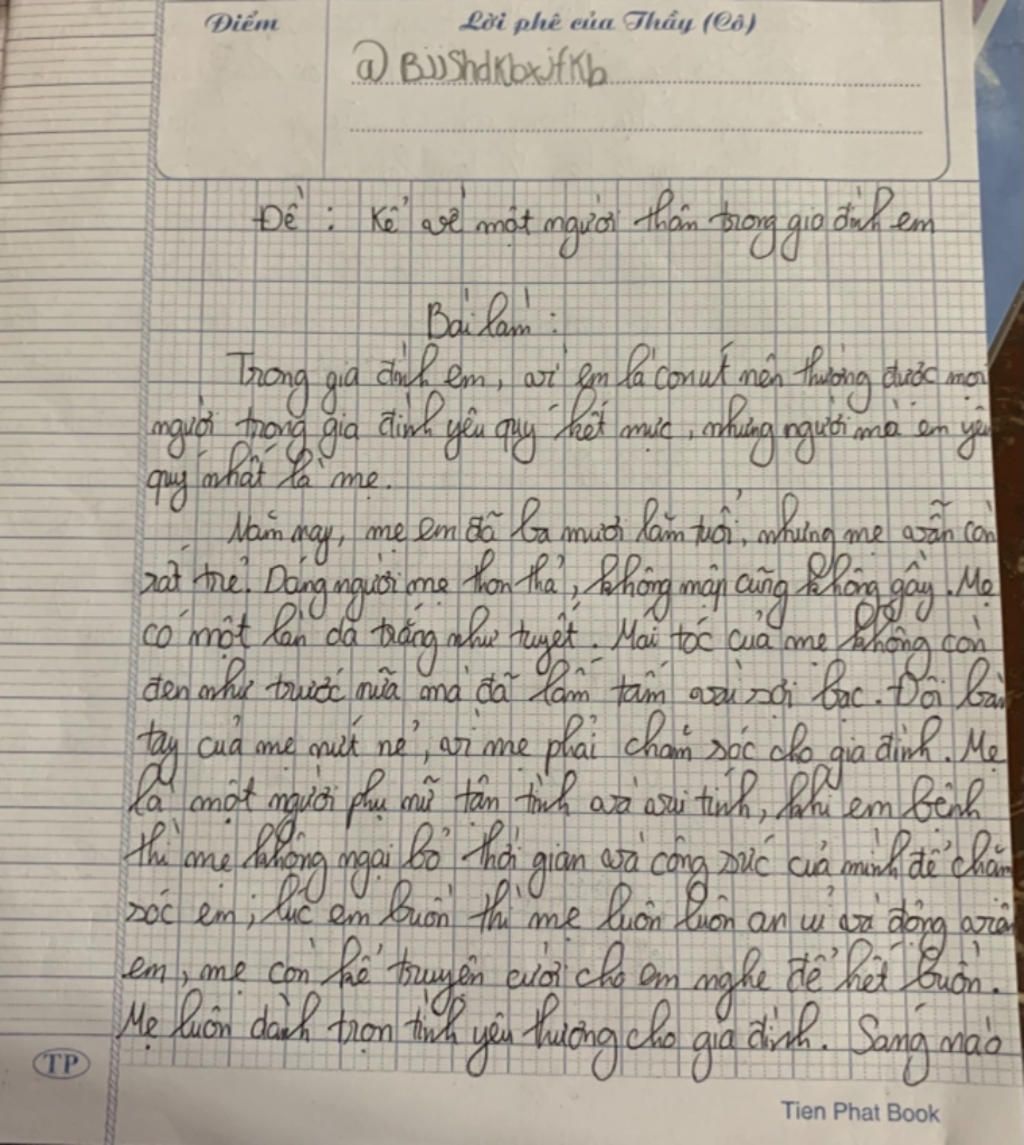 Điểm
Lời phê của Thầy (Cô)
@BJJShdKbxjfKb
Đề : Kể về một người thân trong gia đình em
Bài làm :
Trong gia đình em, vì em là con út nên thường được mọi
người trong gia đình yêu quý hết mực, nhưng người mà em yêu
quý nhất là mẹ.
Năm nay, mẹ em đã ba mươi lăm tuổi, nhưng mẹ vẫn còn
rất trẻ. Dáng người mẹ thon thả, không mập cũng không gầy. Mẹ
có một làn da trắng như tuyết. Mái tóc của mẹ không còn
đen như trước nữa mà đã lấm tấm vài sợi bạc. Đôi bàn
tay của mẹ nứt nẻ, vì mẹ phải chăm sóc cho gia đình. Mẹ
là một người phụ nữ tận tình và vui tính, khi em bệnh
thì mẹ không ngại bỏ thời gian và công sức của mình để chăm
sóc em; lúc em buồn thì mẹ luôn luôn an ủi và động viên
em, mẹ còn kể truyện cười cho em nghe để hết buồn.
Mẹ luôn dành trọn tình yêu thương cho gia đình. Sáng nào
TP
Tien Phat Book